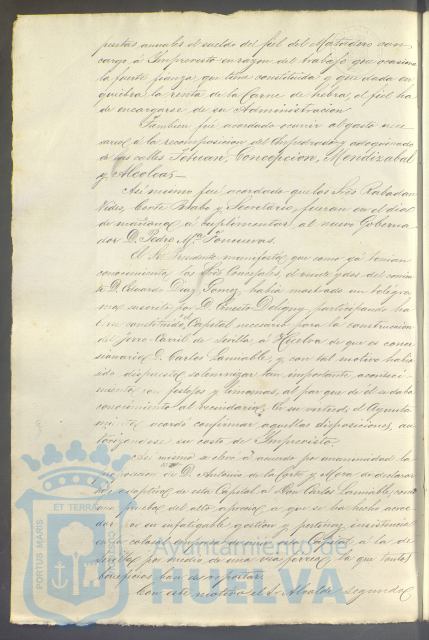 pesetas anuales el sueldo del fiel del Matadero con
cargo á Imprevistos en razon del trabajo que ocasiona
la fuerte fianza que tiene constituida y que dada en
quiebra la renta de la Carne de hebra el fiel ha
de encargarse de su Administracion
Tambien fué acordado ocurrir al gasto nece-
sario á la recomposicion del Empedrado y adoquinado
de las calles Tetuan, Concepcion, Mendizabal
y Alcolea
Asi mismo fué acordado que los Sres Rabadan
Cortes y Secretario, fueran en el dia
de mañana á cumplimentar al nuevo Goberna-
dor D. Pedro Mª
El Sr Presidente manifestó que como ya tenian
conocimiento los Sres Concejales, el veinte y dos del corrien-
te D. Eduardo Diaz Gomez habia mostrado un telégra-
ma suscrito por D. Ernesto Deligny, participando ha-
berse constituido el Capital necesario para la construccion
del ferro-carril de Sevilla á Huelva de que es conce-
sionario D. Carlos Lamiable, y con tal motivo habia
sido dispuesto solemnizar tan importante aconteci-
miento con festejos y limosnas, al par que de él se daba
conocimiento al vecindario. En su virtud, el Ayunta-
miento acordó confirmar aquellas disposiciones, au-
torizandose su costo de Imprevistos
Asi mismo se elevó á acuerdo por unanimidad la
de D. Antonio de la Corte y Mora de declarar
hijo adoptivo de esta Capital á Don Carlos Lamiable, como
una prueba del alto aprecio á que se ha hecho acree-
dor por su infatigable gestion y
en la colosal empresa de unir esta Capital á la de
Sevilla por medio de una via ferrea la que tantos
beneficios han de reportar.
Con este motivo el Sr Alcalde segundo
PORTUS MARIS
ET TERRAE
Ayuntamiento de
HUELVA